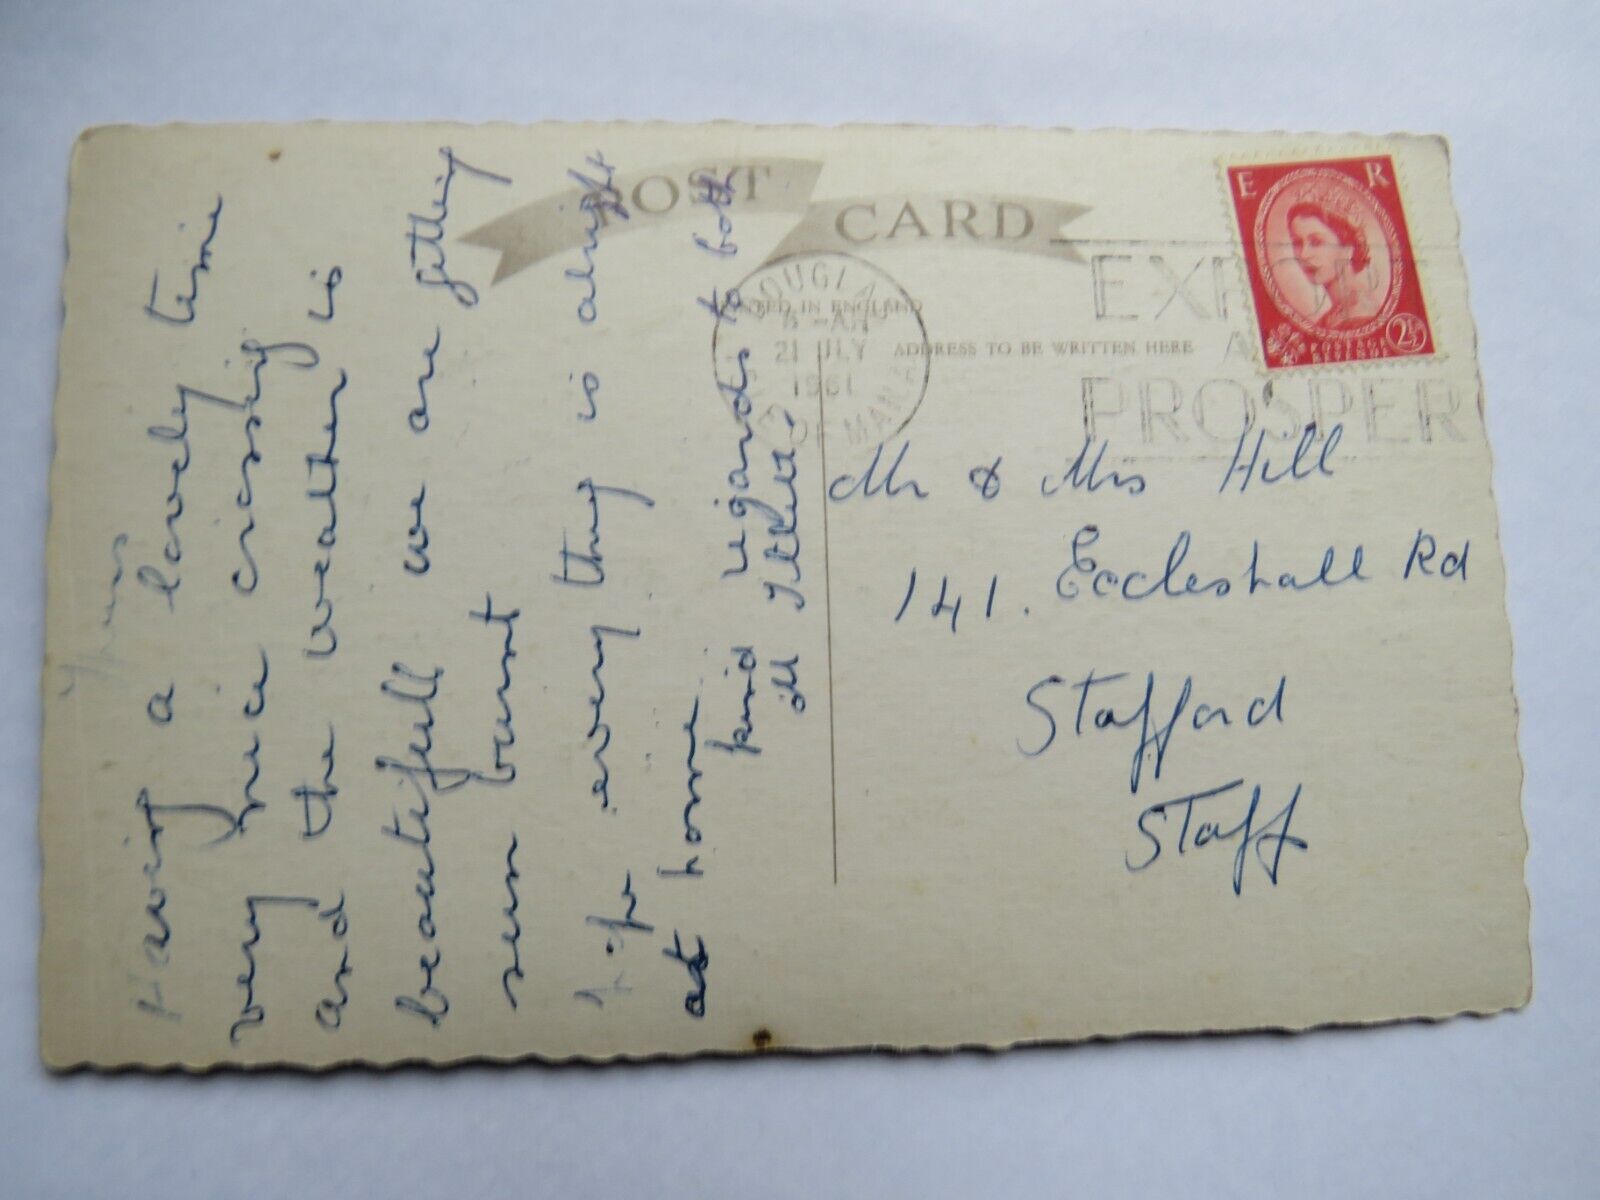 POST CARD
PRINTED IN ENGLAND
ADDRESS TO BE WRITTEN HERE
DOUGLAS
5 -AM
21 JLY
1961
MAN
EXPORT
AND
PROSPER
E R
POSTAGE
REVENUE
2½
Having a lovely time
very nice crossing
and the weather is
beautifull we are getting
sun burnt
every thing is alright
at home
kind regards to both
Mr & Mrs Hill
141. Eccleshall Rd
Stafford
Staff